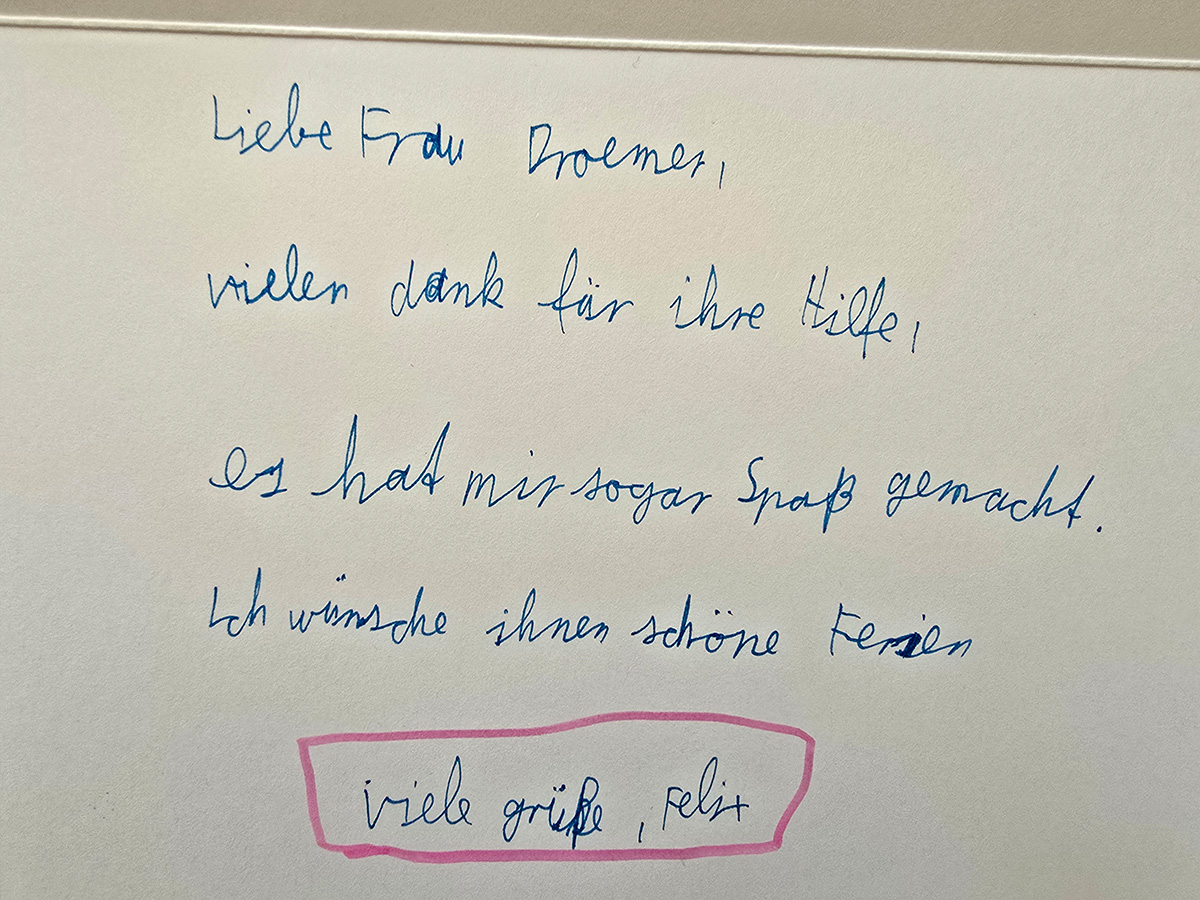 Liebe Frau Droemer,
vielen dank für ihre Hilfe,
es hat mir sogar Spaß gemacht.
Ich wünsche ihnen schöne Ferien
viele grüße, Felix